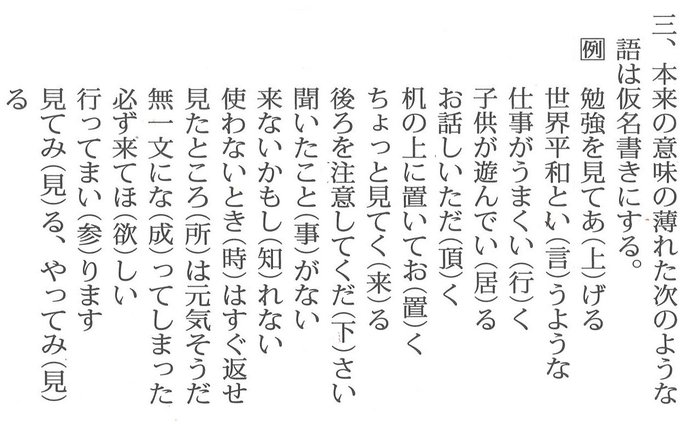 三、本来の意味の薄れた次のような
語は仮名書きにする。
例 勉強を見てあ(上)げる
世界平和とい(言)うような
仕事がうまくい(行)く
子供が遊んでい(居)る
お話しいただ(頂)く
机の上に置いてお(置)く
ちょっと見てく(来)る
後ろを注意してくだ(下)さい
聞いたこと(事)がない
来ないかもし(知)れない
使わないとき(時)はすぐ返せ
見たところ(所)は元気そうだ
無一文にな(成)ってしまった
必ず来てほ(欲)しい
行ってまい(参)ります
見てみ(見)る、やってみ(見)
る